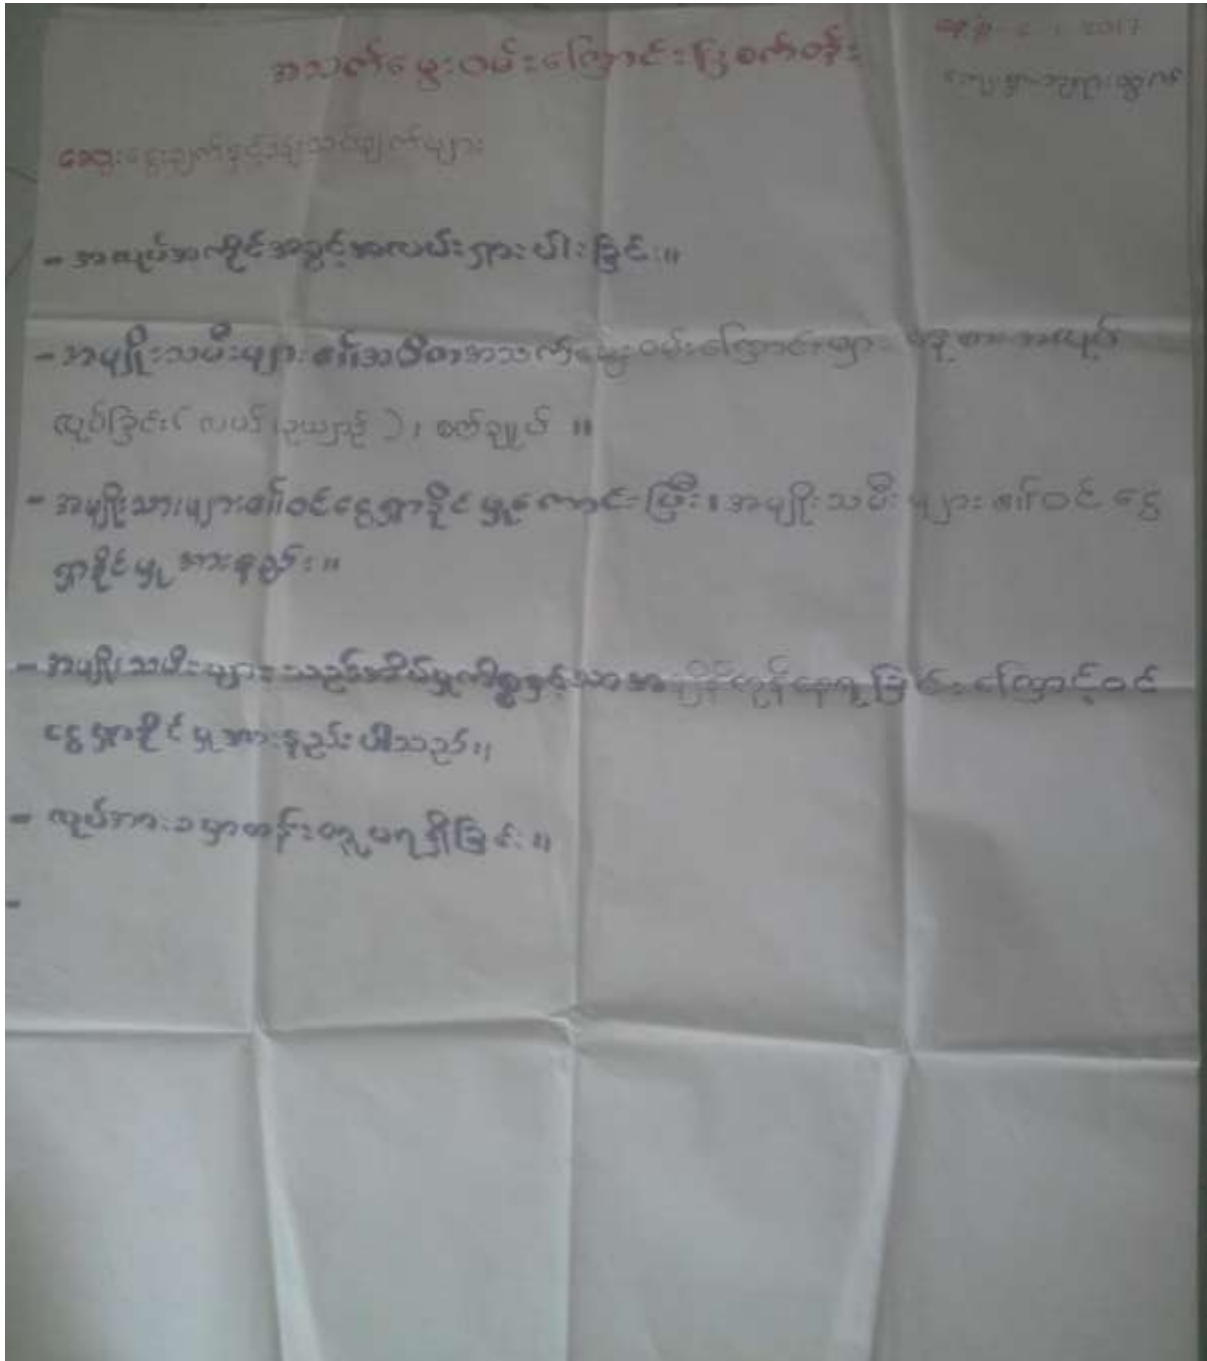 2017
အသက်မွေးဝမ်းကြောင်းပြစက်ဝန်း
ဆွေးနွေးချက်နှင့်သုံးသပ်ချက်များ
- အလုပ်အကိုင်အခွင့်အလမ်းရှားပါးခြင်း။
- အမျိုးသမီးများ၏အဓိကအသက်မွေးဝမ်းကြောင်းများ အလုပ်
လုပ်ခြင်း( လယ်၊ဥယျာဉ် )၊ စက်ချုပ် ။
- အမျိုးသားများ၏ဝင်ငွေရှာနိုင်မှုကောင်းပြီး၊ အမျိုးသမီးများ၏ဝင်ငွေ
ရှာနိုင်မှုအားနည်း။
- အမျိုးသမီးများသည်အိမ်မှုကိစ္စနှင့်သာအချိန်ကုန်နေရခြင်းကြောင့်ဝင်
ငွေရှာနိုင်မှုအားနည်းပါသည်။
- လုပ်အားခမှာတန်းတူမရရှိခြင်း။
-